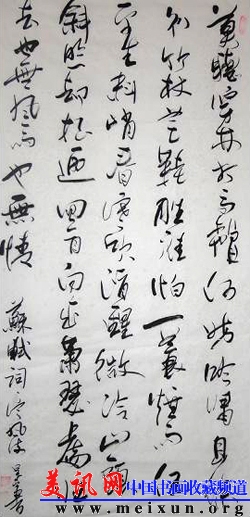 莫聽穿林打葉聲何妨吟嘯且徐
行竹杖芒鞋勝誰怕一蓑煙雨任
平生料峭春風吹酒醒微冷山頭
斜照却相迎回首向來蕭瑟處歸
去也無風雨也無情
蘇軾詞定風波
美讯网
中国书画收藏频道
www.meixun.org